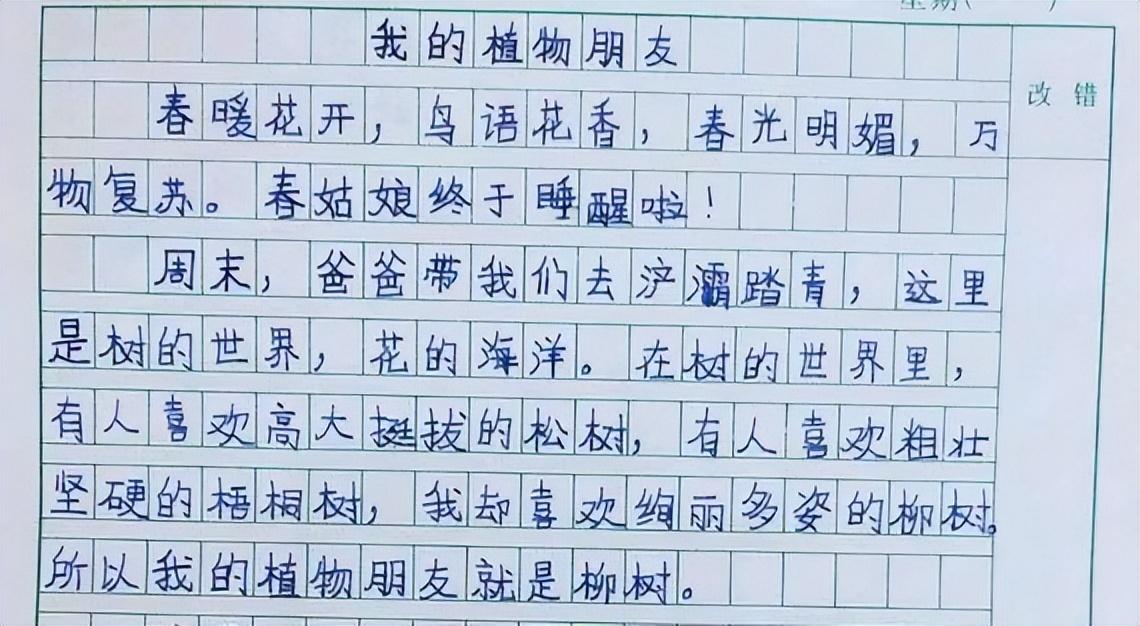 星期(  )
我的植物朋友
改错
春暖花开，鸟语花香，春光明媚，万
物复苏。春姑娘终于睡醒啦！
周末，爸爸带我们去浐灞踏青，这里
是树的世界，花的海洋。在树的世界里，
有人喜欢高大挺拔的松树，有人喜欢粗壮
坚硬的梧桐树，我却喜欢绚丽多姿的柳树。
所以我的植物朋友就是柳树。